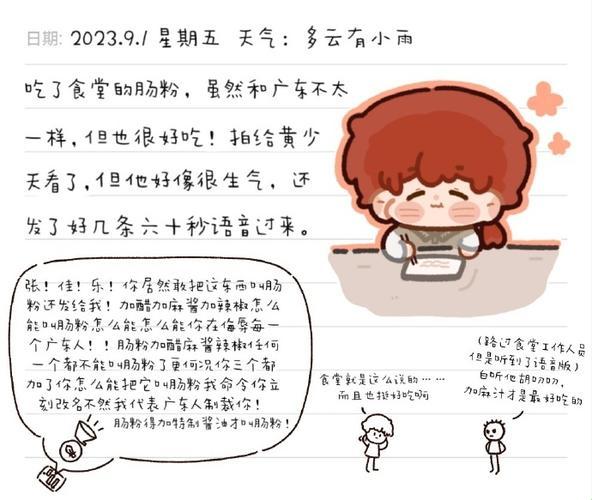 日期: 2023.9.1 星期五 天气：多云有小雨
吃了食堂的肠粉，虽然和广东不太
一样，但也很好吃！拍给黄少
天看了，但他好像很生气，还
发了好几条六十秒语音过来。
张！佳！乐！你居然敢把这东西叫肠
粉还发给我！加醋加麻酱加辣椒怎么
能叫肠粉怎么能怎么能你在侮辱每一
个广东人！！肠粉加醋麻酱辣椒任何
一个都不能叫肠粉了更何况你三个都
加了你怎么能把它叫肠粉我命令你立
刻改名不然我代表广东人制裁你！
肠粉得加特制酱油才叫肠粉！
食堂就是这么说的……
而且也挺好吃啊
（路过食堂工作人员
但是听到了语音版）
白听他胡叨叨，
加麻汁才是最好吃的